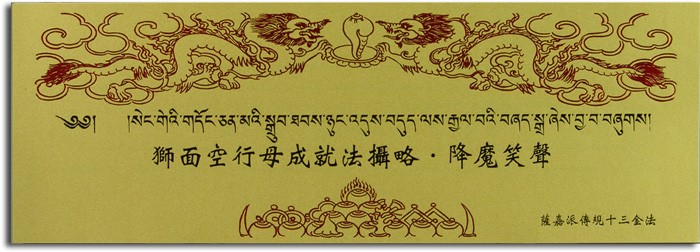 ༄༅། །སེང་གེའི་གདོང་ཅན་མའི་སྒྲུབ་ཐབས་ཉུང་འདུས་བདུད་ལས་རྒྱལ་བའི་བཞད་སྒྲ་ཞེས་བྱ་བ་བཞུགས།
獅面空行母成就法攝略・降魔笑聲
薩嘉派傳規十三金法